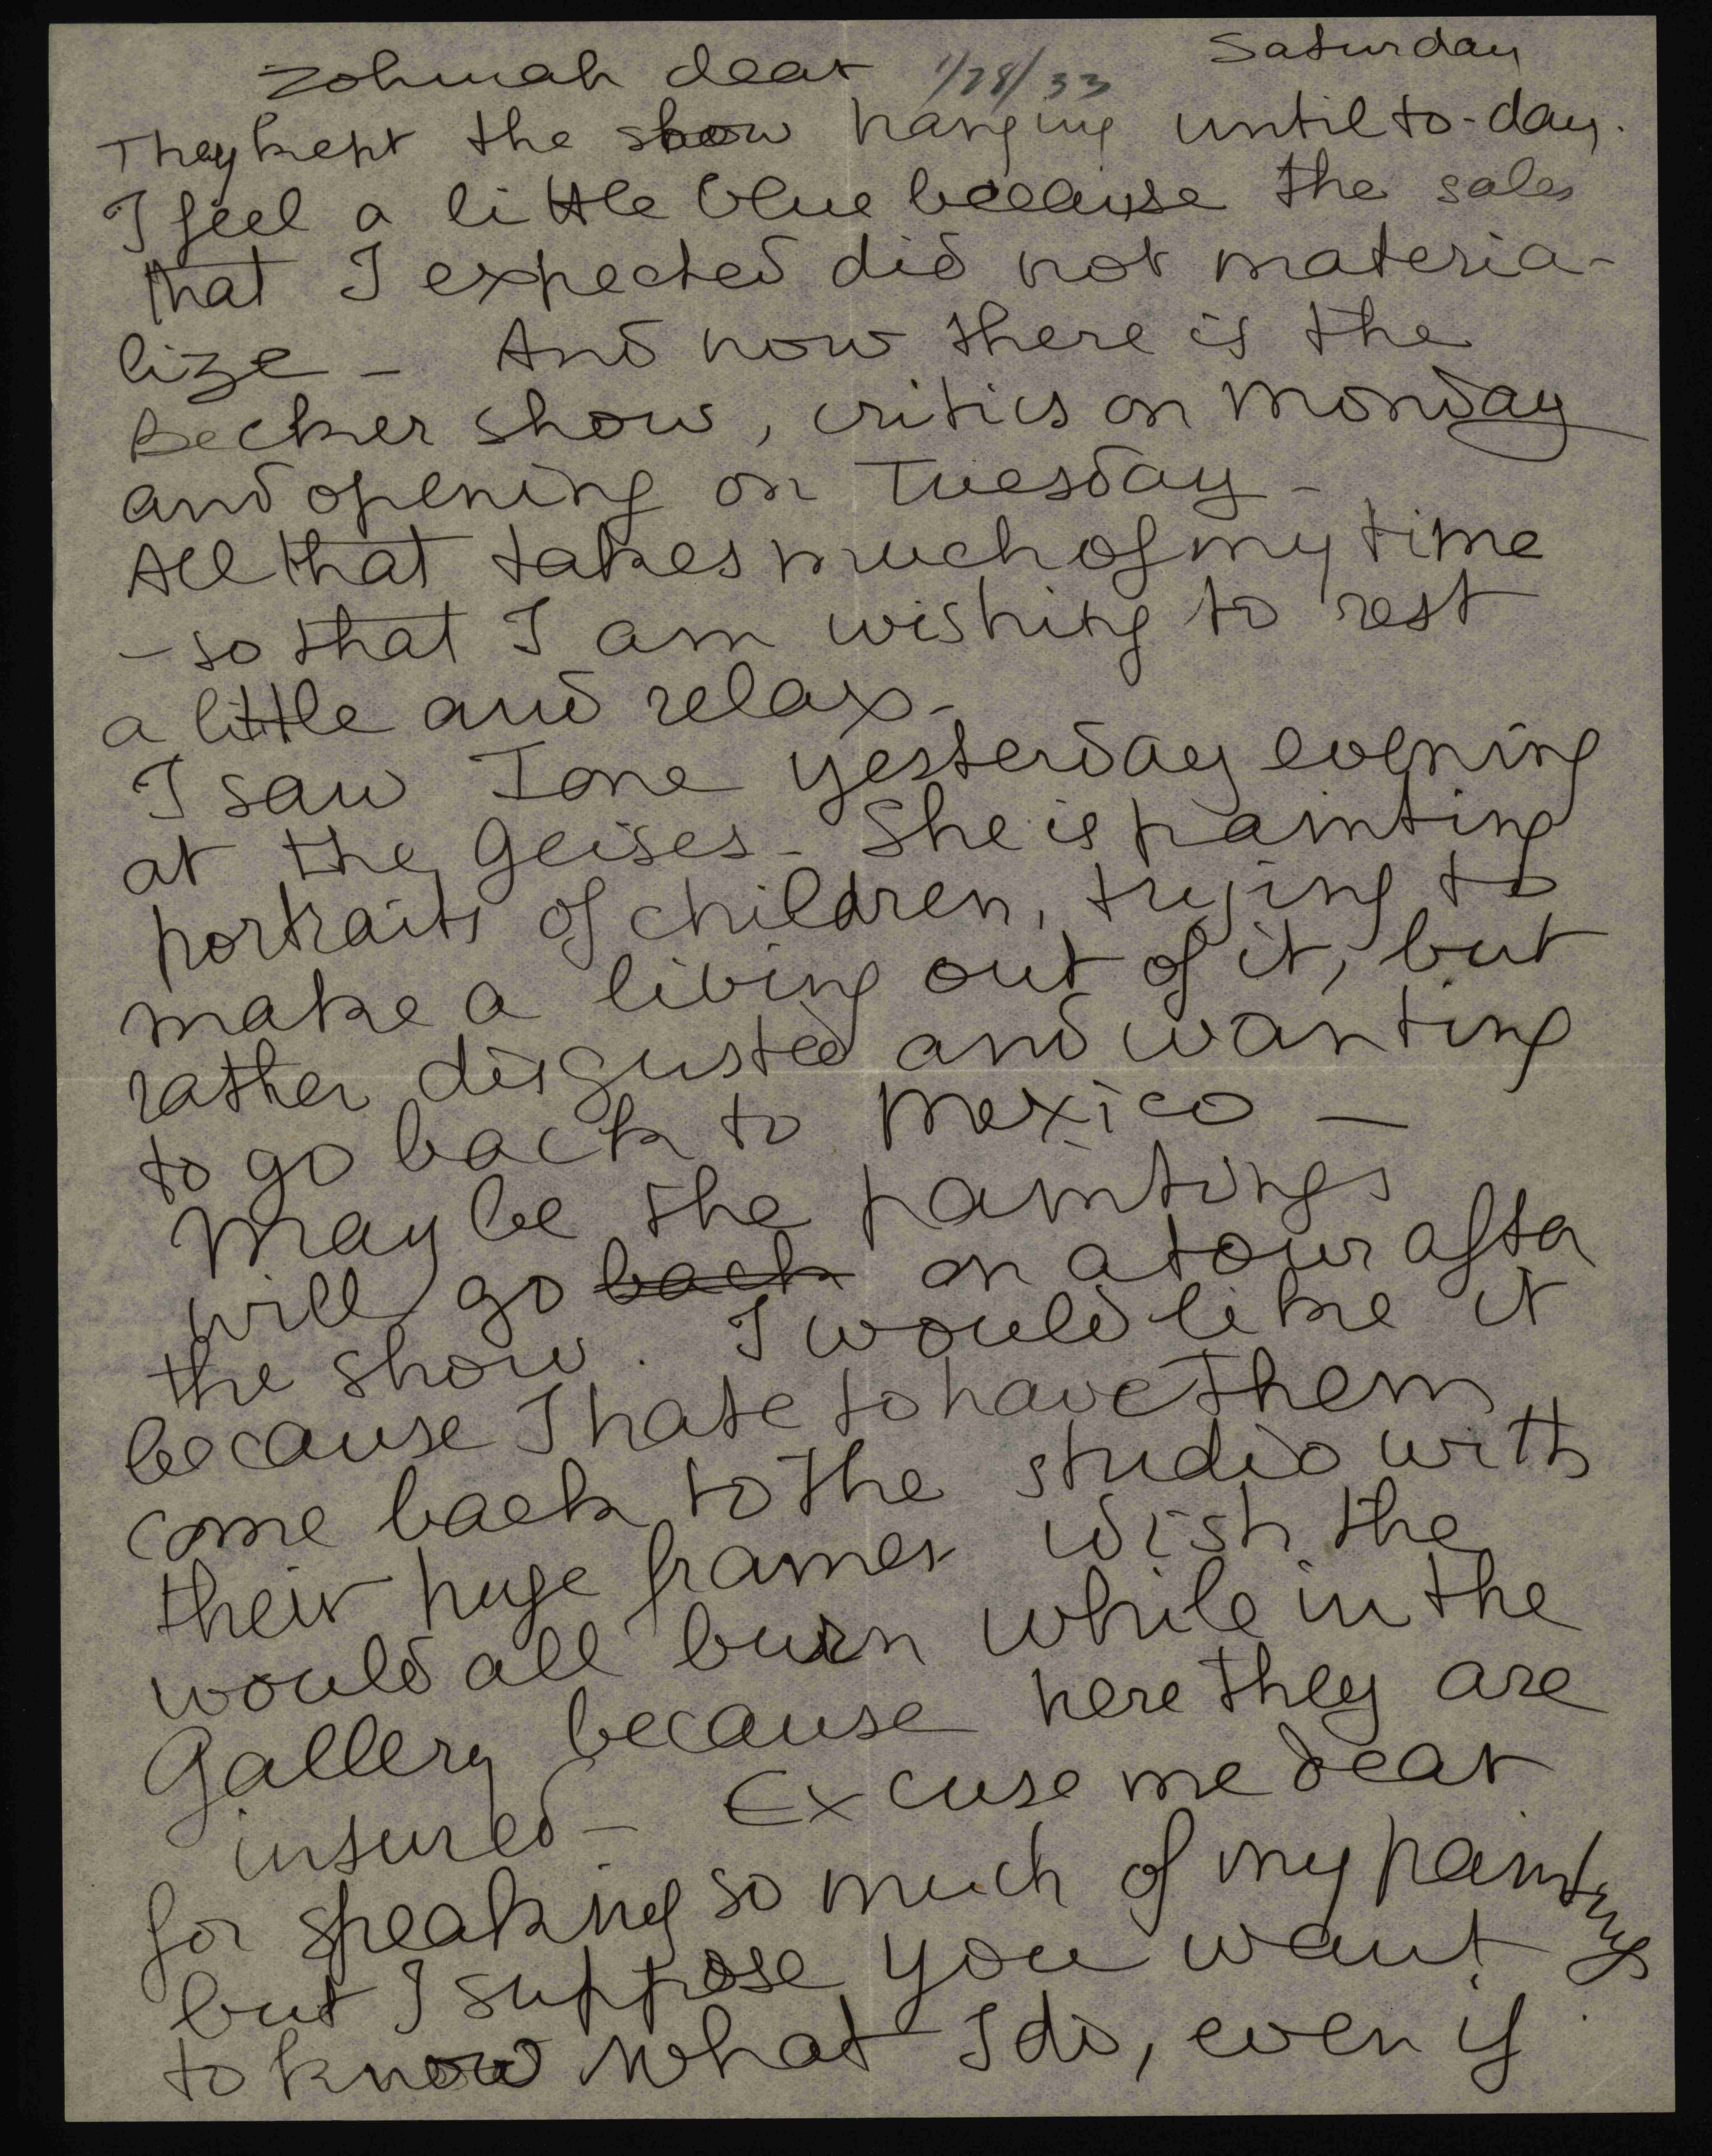 Saturday
Zohmah dear 1/28/33
They kept the show hanging until to-day.
I feel a little blue because the sales
that I expected did not materia-
lize - And now there is the
Becker show, critics on Monday
and opening on Tuesday -
All that takes much of my time
- so that I am wishing to rest
a little and relax -
I saw Ione yesterday evening
at the Geises - She is painting
portraits of children, trying to
make a living out of it, but
rather disgusted and wanting
to go back to Mexico -
May be the paintings
will go back on a tour after
the show. I would like it
because I hate to have them
come back to the studio with
their huge frames wish the
would all burn while in the
Gallery because here they are
insured - Excuse me dear
for speaking so much of my paintings
but I suppose you want
to know what I do, even if